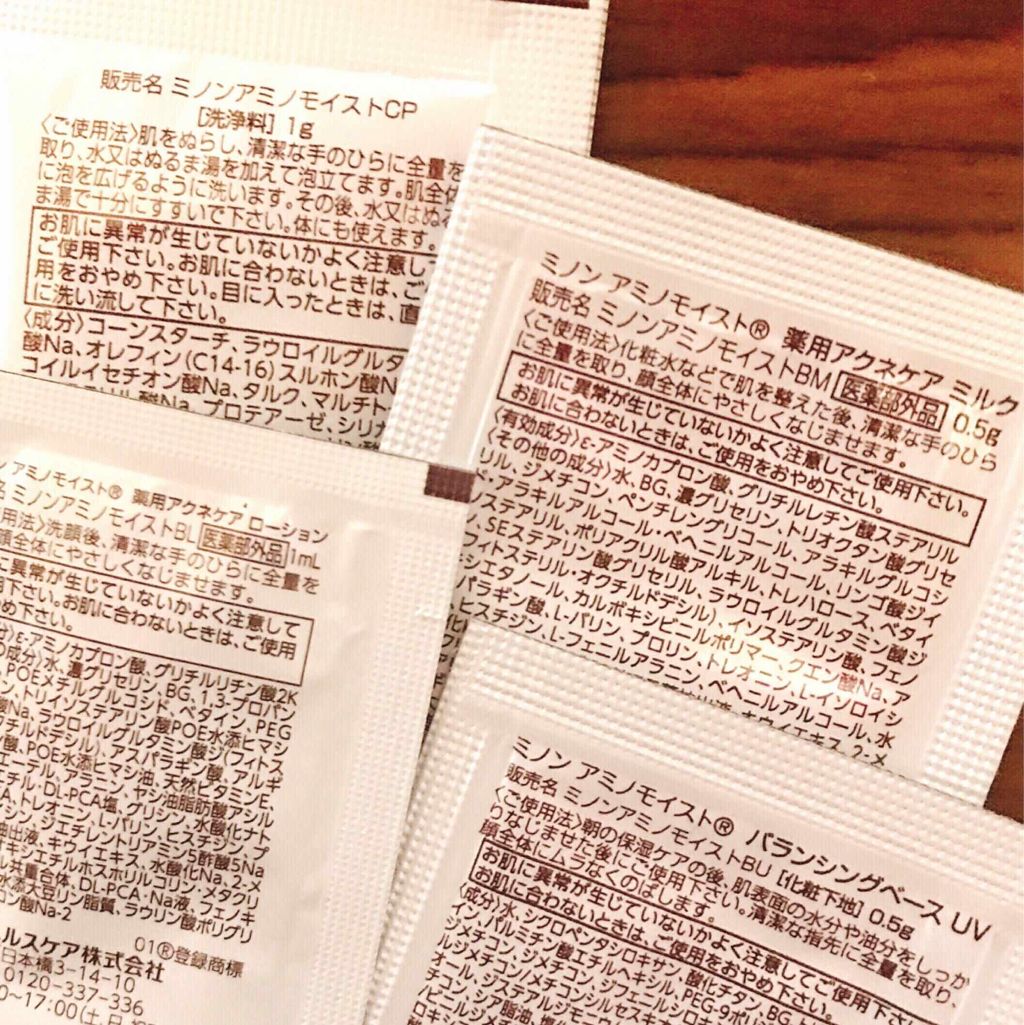 販売名 ミノンアミノモイストCP
[洗浄料] 1g
〈ご使用法〉肌をぬらし、清潔な手のひらに全量を
取り、水又はぬるま湯を加えて泡立てます。肌全体
に泡を広げるように洗います。その後、水又はぬる
ま湯で十分にすすいで下さい。体にも使えます。
お肌に異常が生じていないかよく注意して
ご使用下さい。お肌に合わないときは、ご
用をおやめ下さい。目に入ったときは、直
に洗い流して下さい。
〈成分〉コーンスターチ、ラウロイルグルタ
酸Na、オレフィン(C14-16)スルホン酸N
コイルイセチオン酸Na、タルク、マルチト
酸Na、プロテアーゼ、シリカ
ミノン アミノモイスト® 薬用アクネケア ミルク
販売名 ミノンアミノモイストBM 医薬部外品 0.5g
〈ご使用法〉化粧水などで肌を整えた後、清潔な手のひら
に全量を取り、顔全体にやさしくなじませます。
お肌に異常が生じていないかよく注意してご使用下さい。
お肌に合わないときは、ご使用をおやめ下さい。
〈有効成分〉ε-アミノカプロン酸、グリチルレチン酸ステアリル
〈その他の成分〉水、BG、濃グリセリン、トリオクタン酸グリセ
リル、ジメチコン、ペンチレングリコール、アラキルグルコシ
ド、アラキルアルコール、ベヘニルアルコール、リンゴ酸ジイ
ソステアリル、ポリアクリル酸アルキル、トレハロース、ベタイ
ン、SEステアリン酸グリセリル、ラウロイルグルタミン酸ジ
(フィトステリル・オクチルドデシル)、イソステアリン酸、フェノ
キシエタノール、カルボキシビニルポリマー、クエン酸Na、ア
スパラギン酸、L-バリン、プロリン、トレオニン、L-イソロイシ
ン、ヒスチジン、L-フェニルアラニン、ベヘニルアルコール、水
キウイエキス、2-メ
ン アミノモイスト® 薬用アクネケア ローション
名 ミノンアミノモイストBL 医薬部外品 1mL
用法〉洗顔後、清潔な手のひらに全量を
顔全体にやさしくなじませます。
に異常が生じていないかよく注意して
用下さい。お肌に合わないときは、ご使用
やめ下さい。
分〉ε-アミノカプロン酸、グリチルリチン酸2K
の成分〉水、濃グリセリン、BG、1,3-プロパン
、POEメチルグルコシド、ベタイン、PEG
ン、トリイソステアリン酸POE水添ヒマシ
酸Na、ラウロイルグルタミン酸ジ(フィトス
クチルドデシル)、アスパラギン酸、アルギ
酸、POE水添ヒマシ油、天然ビタミンE、
エチル・DL-PCA塩、アラニン、ヤシ油脂肪酸アシル
A、トレオニン、L-バリン、グリシン、水酸化ナト
リン、ジエチレントリアミン5酢酸5Na
抽出液、キウイエキス、水酸化Na、2-メ
キシエチルホスホリルコリン・メタクリ
共重合体、DL-PCA・Na液、フェノキ
水添大豆リン脂質、ラウリン酸ポリグリ
コン酸Na-2
01®登録商標
ヘルスケア株式会社
日本橋3-14-10
0120-337-336
0〜17:00(土、日、祝
ミノン アミノモイスト® バランシングベース UV
販売名 ミノンアミノモイストBU [化粧下地] 0.5g
〈ご使用法〉朝の保湿ケアの後、肌表面の水分や油分をしっか
りなじませた後にご使用下さい。清潔な指先に全量を取り、
顔全体にムラなくのばします。
お肌に異常が生じていないかよく注意してご使用下さい。
お肌に合わないときは、ご使用をおやめ下さい。
〈成分〉水、シクロペンタシロキサン、酸化チタン、BG、
ン、パルミチン酸エチルヘキシル、PEG-9ポリ
ルジメチコン、ジメチコン、ジフェニルシロキ